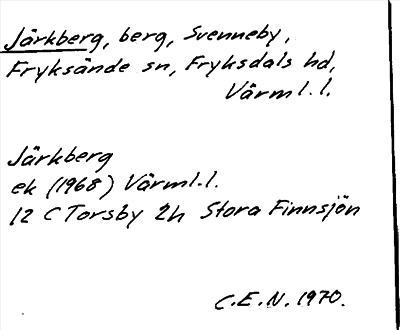 Järkberg, berg, Svenneby,
Fryksände sn, Fryksdals hd,
Värml.l.
Järkberg
ek (1968) Värml.l.
12 C Torsby 2h Stora Finnsjön
C.E.N. 1970.